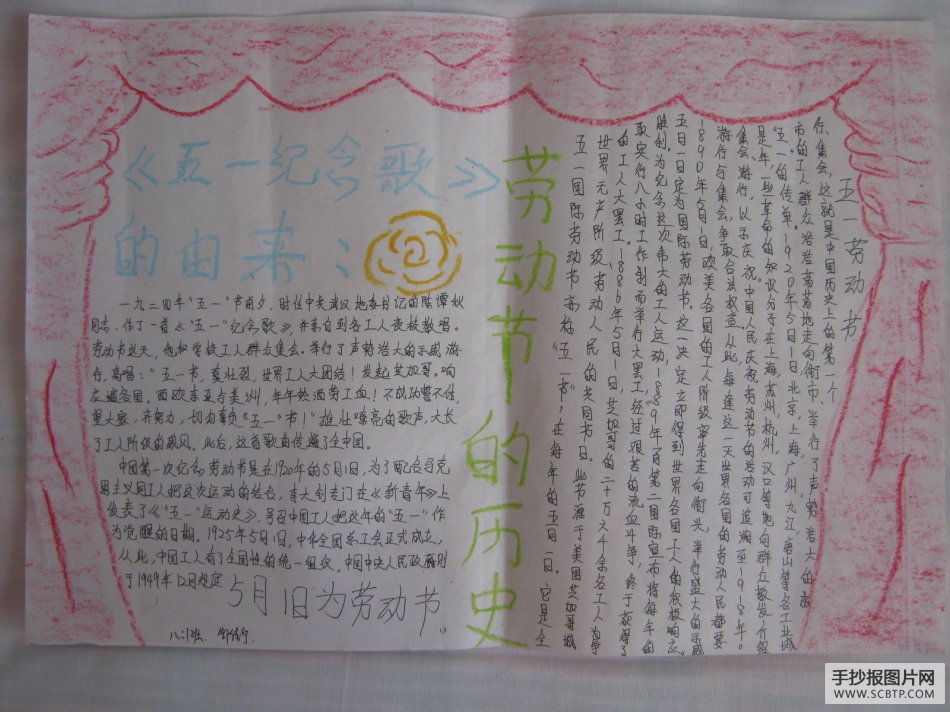 《五一纪念歌》
的由来：
一九二四年“五一”节前夕，时任中共武汉地委书记的陈潭秋
同志，作了一首《“五一”纪念歌》，并亲自到各工人夜校教唱。
劳动节这天，他和学校工人群众集会。举行了声势浩大的示威游
行，高唱：“五一节，真壮烈，世界工人大团结！发起芝加哥。响
应遍各国。西欧东亚与美洲，年年热洒劳工血！不成功誓不休，
望大家，齐努力，切勿辜负《五一》节！”雄壮嘹亮的歌声，大长
了工人阶级的威风，此后，这首歌曲传遍了全中国。
中国第一次纪念劳动节是在1920年的5月1日，为了配合马克
思主义同工人把这次运动的结合，李大钊专门在《新青年》上
发表了《“五一”运动史》，号召中国工人把这年的“五一”作
为觉醒的日期。1925年5月1日，中华全国总工会正式成立，
从此，中国工人有了全国性的统一组织。中国中央人民政府则
于1949年12月规定
5月1日为劳动节。
八.1班
劳动节的历史
五一劳动节
五一国际劳动节亦称“五一节”，在每年的五月一日。它是全
世界无产阶级劳动人民的共同节日。此节源于美国芝加哥城
的工人大罢工。1886年5月1日，芝加哥的二十万六千余名工人为争
取实行八小时工作制而举行大罢工，经过艰苦的流血斗争，终于获得了
胜利。为纪念这次伟大的工人运动，1889年7月第二国际宣布将每年的
五月一日定为国际劳动节。这一决定立即得到世界各国工人的积极响应。
1890年5月1日，欧美各国的工人阶级率先走向街头，举行盛大的示威
游行与集会，争取合法权益。从此，每逢这一天世界各国的劳动人民都要
集会、游行，以示庆祝。中国人民庆祝劳动节的活动可追溯至1918年。
是年，一些革命的知识分子在上海，苏州，杭州，汉口等地向群众散发介绍
“五一”的传单。1920年5月1日，北京，上海，广州，九江，唐山等各工业城
市的工人群众浩浩荡荡地走向街市、举行了声势浩大的游
行、集会，这就是中国历史上的第一个
手抄报图片网
WWW.SCBTP.COM